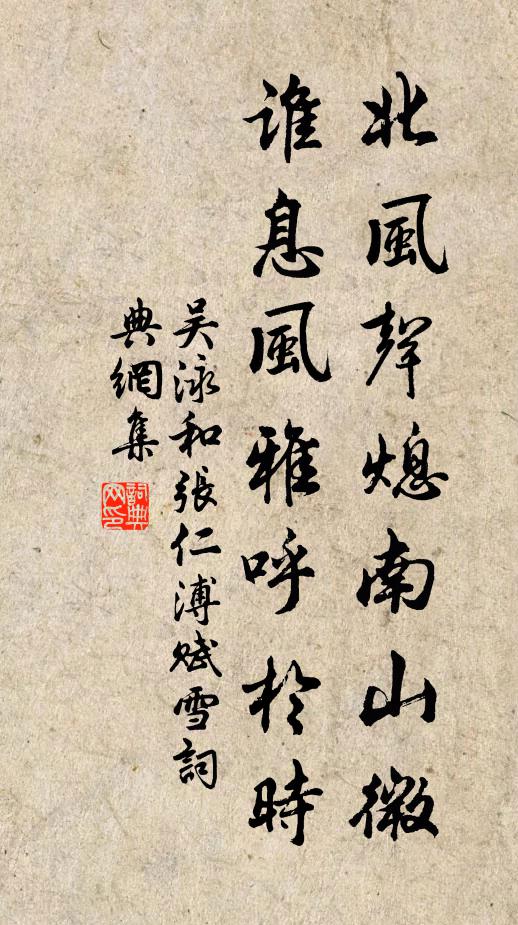 北風聲熄南山微
誰息風雅呼於時
吴泳和張仁溥賦雪詞
典網集
詞典
网印